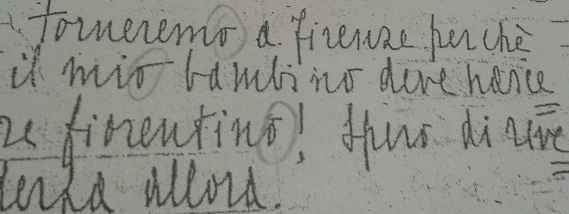 Torneremo a firenze perchè
il mio bambino deve nasce
re fiorentino! Spero di rive
derla allora.